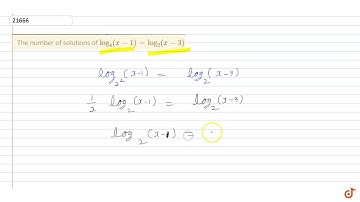 21666
The number of solutions of log₄(x − 1) = log₂(x − 3)
log_{2²}(x-1) = log₂(x-3)
1/2 log₂(x-1) = log₂(x-3)
log₂(x-1) =
doubtnut